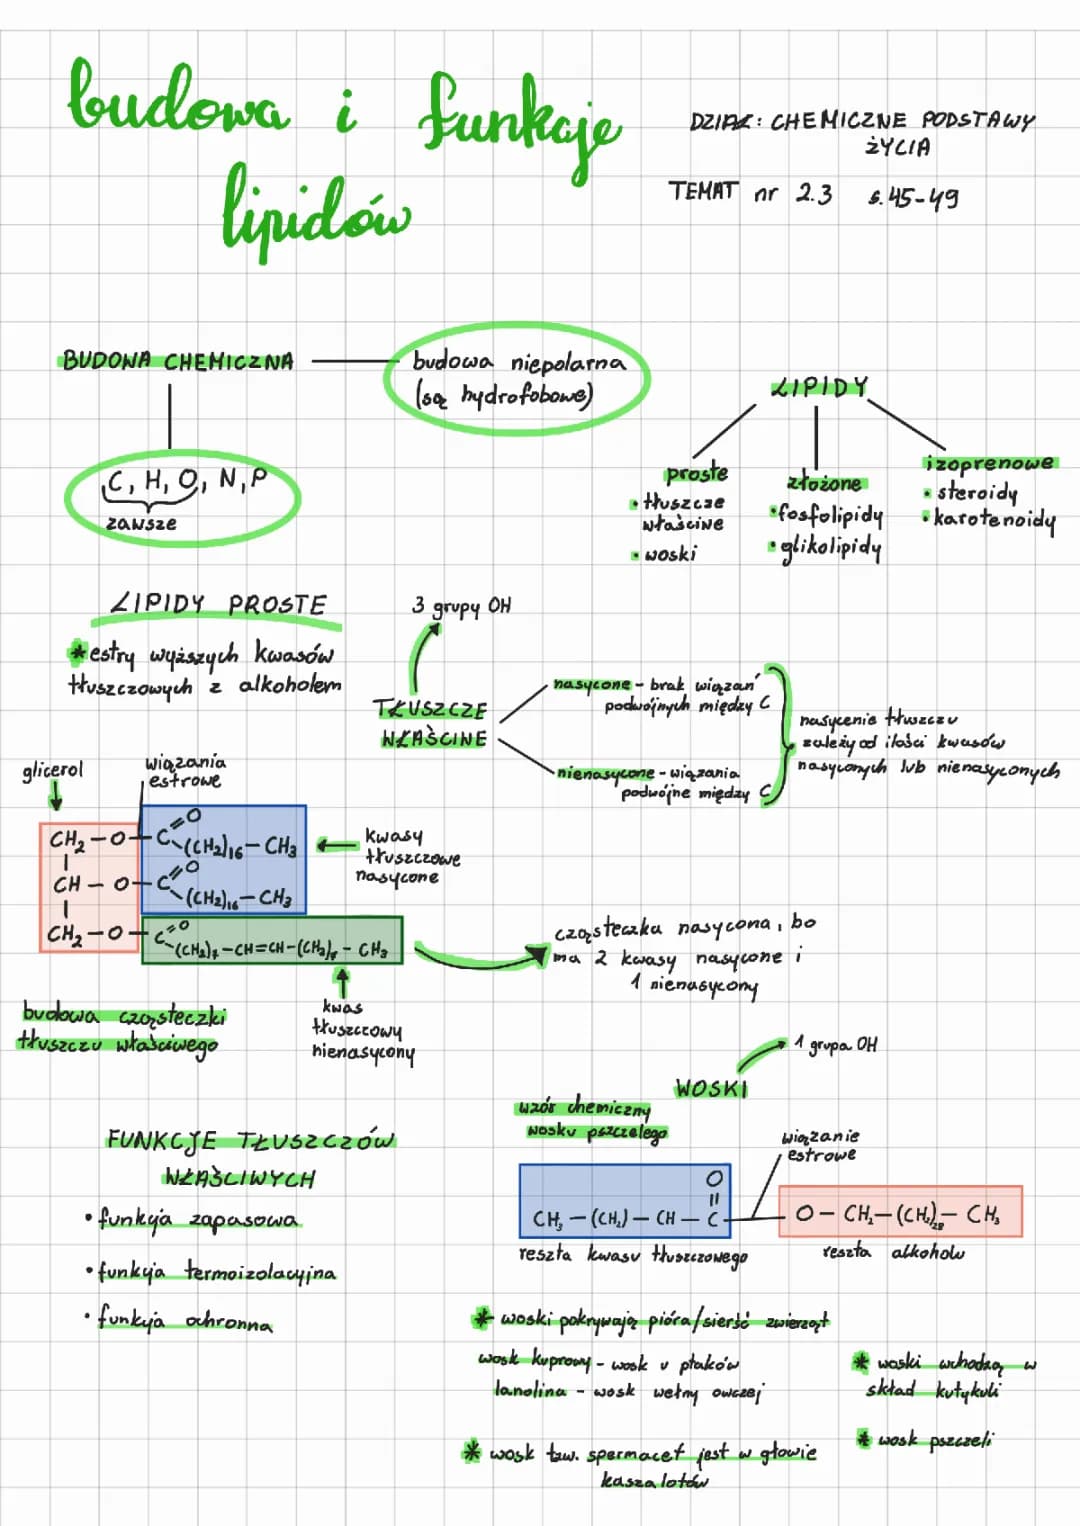 budowa i funkcje
lipidów
DZIAŁ: CHEMICZNE PODSTAWY
ŻYCIA
TEMAT nr 2.3 s.45-49
BUDOWA CHEMICZNA
budowa niepolarna
(są hydrofobowe)
C, H, O, N, P
zawsze
LIPIDY
proste
• tłuszcze
właściwe
• woski
złożone
• fosfolipidy
• glikolipidy
izoprenowe
• steroidy
• karotenoidy
LIPIDY PROSTE
* estry wyższych kwasów
tłuszczowych z alkoholem
3 grupy OH
TŁUSZCZE
WŁAŚCIWE
nasycone - brak wiązań
podwójnych między C
nienasycone - wiązania
podwójne między C
nasycenie tłuszczu
zależy od ilości kwasów
nasyconych lub nienasyconych
glicerol
wiązania
estrowe
CH₂ - O - C =O -(CH₂)₁₆ - CH₃
CH - O - C =O -(CH₂)₁₆ - CH₃
CH₂ - O - C =O -(CH₂)₇ - CH = CH - (CH₂)₇ - CH₃
kwasy
tłuszczowe
nasycone
cząsteczka nasycona, bo
ma 2 kwasy nasycone i
1 nienasycony
kwas
tłuszczowy
nienasycony
budowa cząsteczki
tłuszczu właściwego
FUNKCJE TŁUSZCZÓW
WŁAŚCIWYCH
• funkcja zapasowa
• funkcja termoizolacyjna
• funkcja ochronna
1 grupa OH
WOSKI
wzór chemiczny
wosku pszczelego
wiązanie
estrowe
O
||
CH₃ - (CH₂) - CH - C - O - CH₂ - (CH₂)₂₈ - CH₃
reszta kwasu tłuszczowego
reszta alkoholu
* woski pokrywają pióra/sierść zwierząt
wosk kuprowy - wosk u ptaków
lanolina - wosk wełny owczej
* wosk tzw. spermacet jest w głowie
kaszalotów
* woski wchodzą w
skład kutykuli
* wosk pszczeli